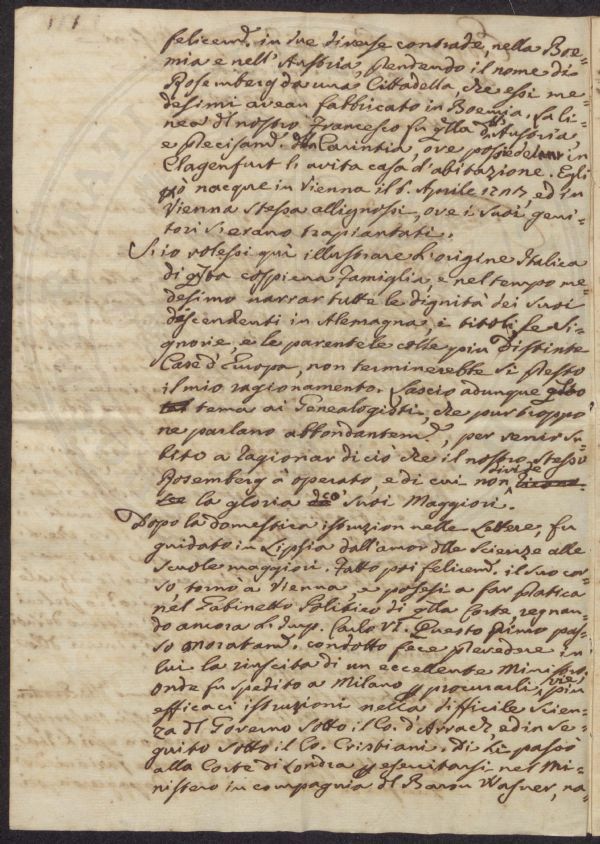 felicem.e in due diverse contrade, nella Boe=
mia e nell'Austria, prendendo il nome di
Rosemberg da una Cittadella, che essi me=
desimi avean fabbricato in Boemia. La li=
nea dl nostro Francesco fu qlla d'Austria,
e precisam.e di Carintia, ove possiede in
Clagenfurt l'avita casa d'abitazione. Egli
pò nacque in Vienna il 6. Aprile 1723, ed in
Vienna stessa allignossi, ove i suoi geni=
tori si erano trapiantati.
S'io volessi quì illustrare l'origine Italica
di qsta cospicua Famiglia, e nel tempo me=
desimo narrar tutte le dignità dei suoi
discendenti in Alemagna, i titoli, le Si=
gnorie, e le parentele colle più distinte
Case d'Europa, non terminerebbe sì presto
il mio ragionamento. Lascio adunque qsto
tema ai Genealogisti, che pur troppo
ne parlano abbondantem.e, per venir su=
bito a ragionar di ciò che il nostro stesso
Rosemberg à operato, e di cui non divide
la gloria co' suoi Maggiori.
Dopo la domestica istruzion nelle Lettere, fu
guidato in Lipsia dall'amor dlle Scienze alle
scuole maggiori. Fatto poi felicem.e il suo cor=
so, tornò à Vienna, e posesi a far pratica
nel Gabinetto Politico di qlla Corte regnan=
do ancora l'Imp. Carlo VI. Questo primo pas=
so moratam.e condotto fece prevedere in
lui la riuscita di un eccellente Ministro,
onde fu spedito a Milano p procurarli vie più
efficaci istruzioni nella difficile Scien=
za dl Governo sotto il Co. d'Arrach ed in se=
guito sotto il Co. Cristiani. Di lì passò
alla Corte di Londra p esercitarsi nel Mi=
nistero in compagnia dl Baron Wasner, na=